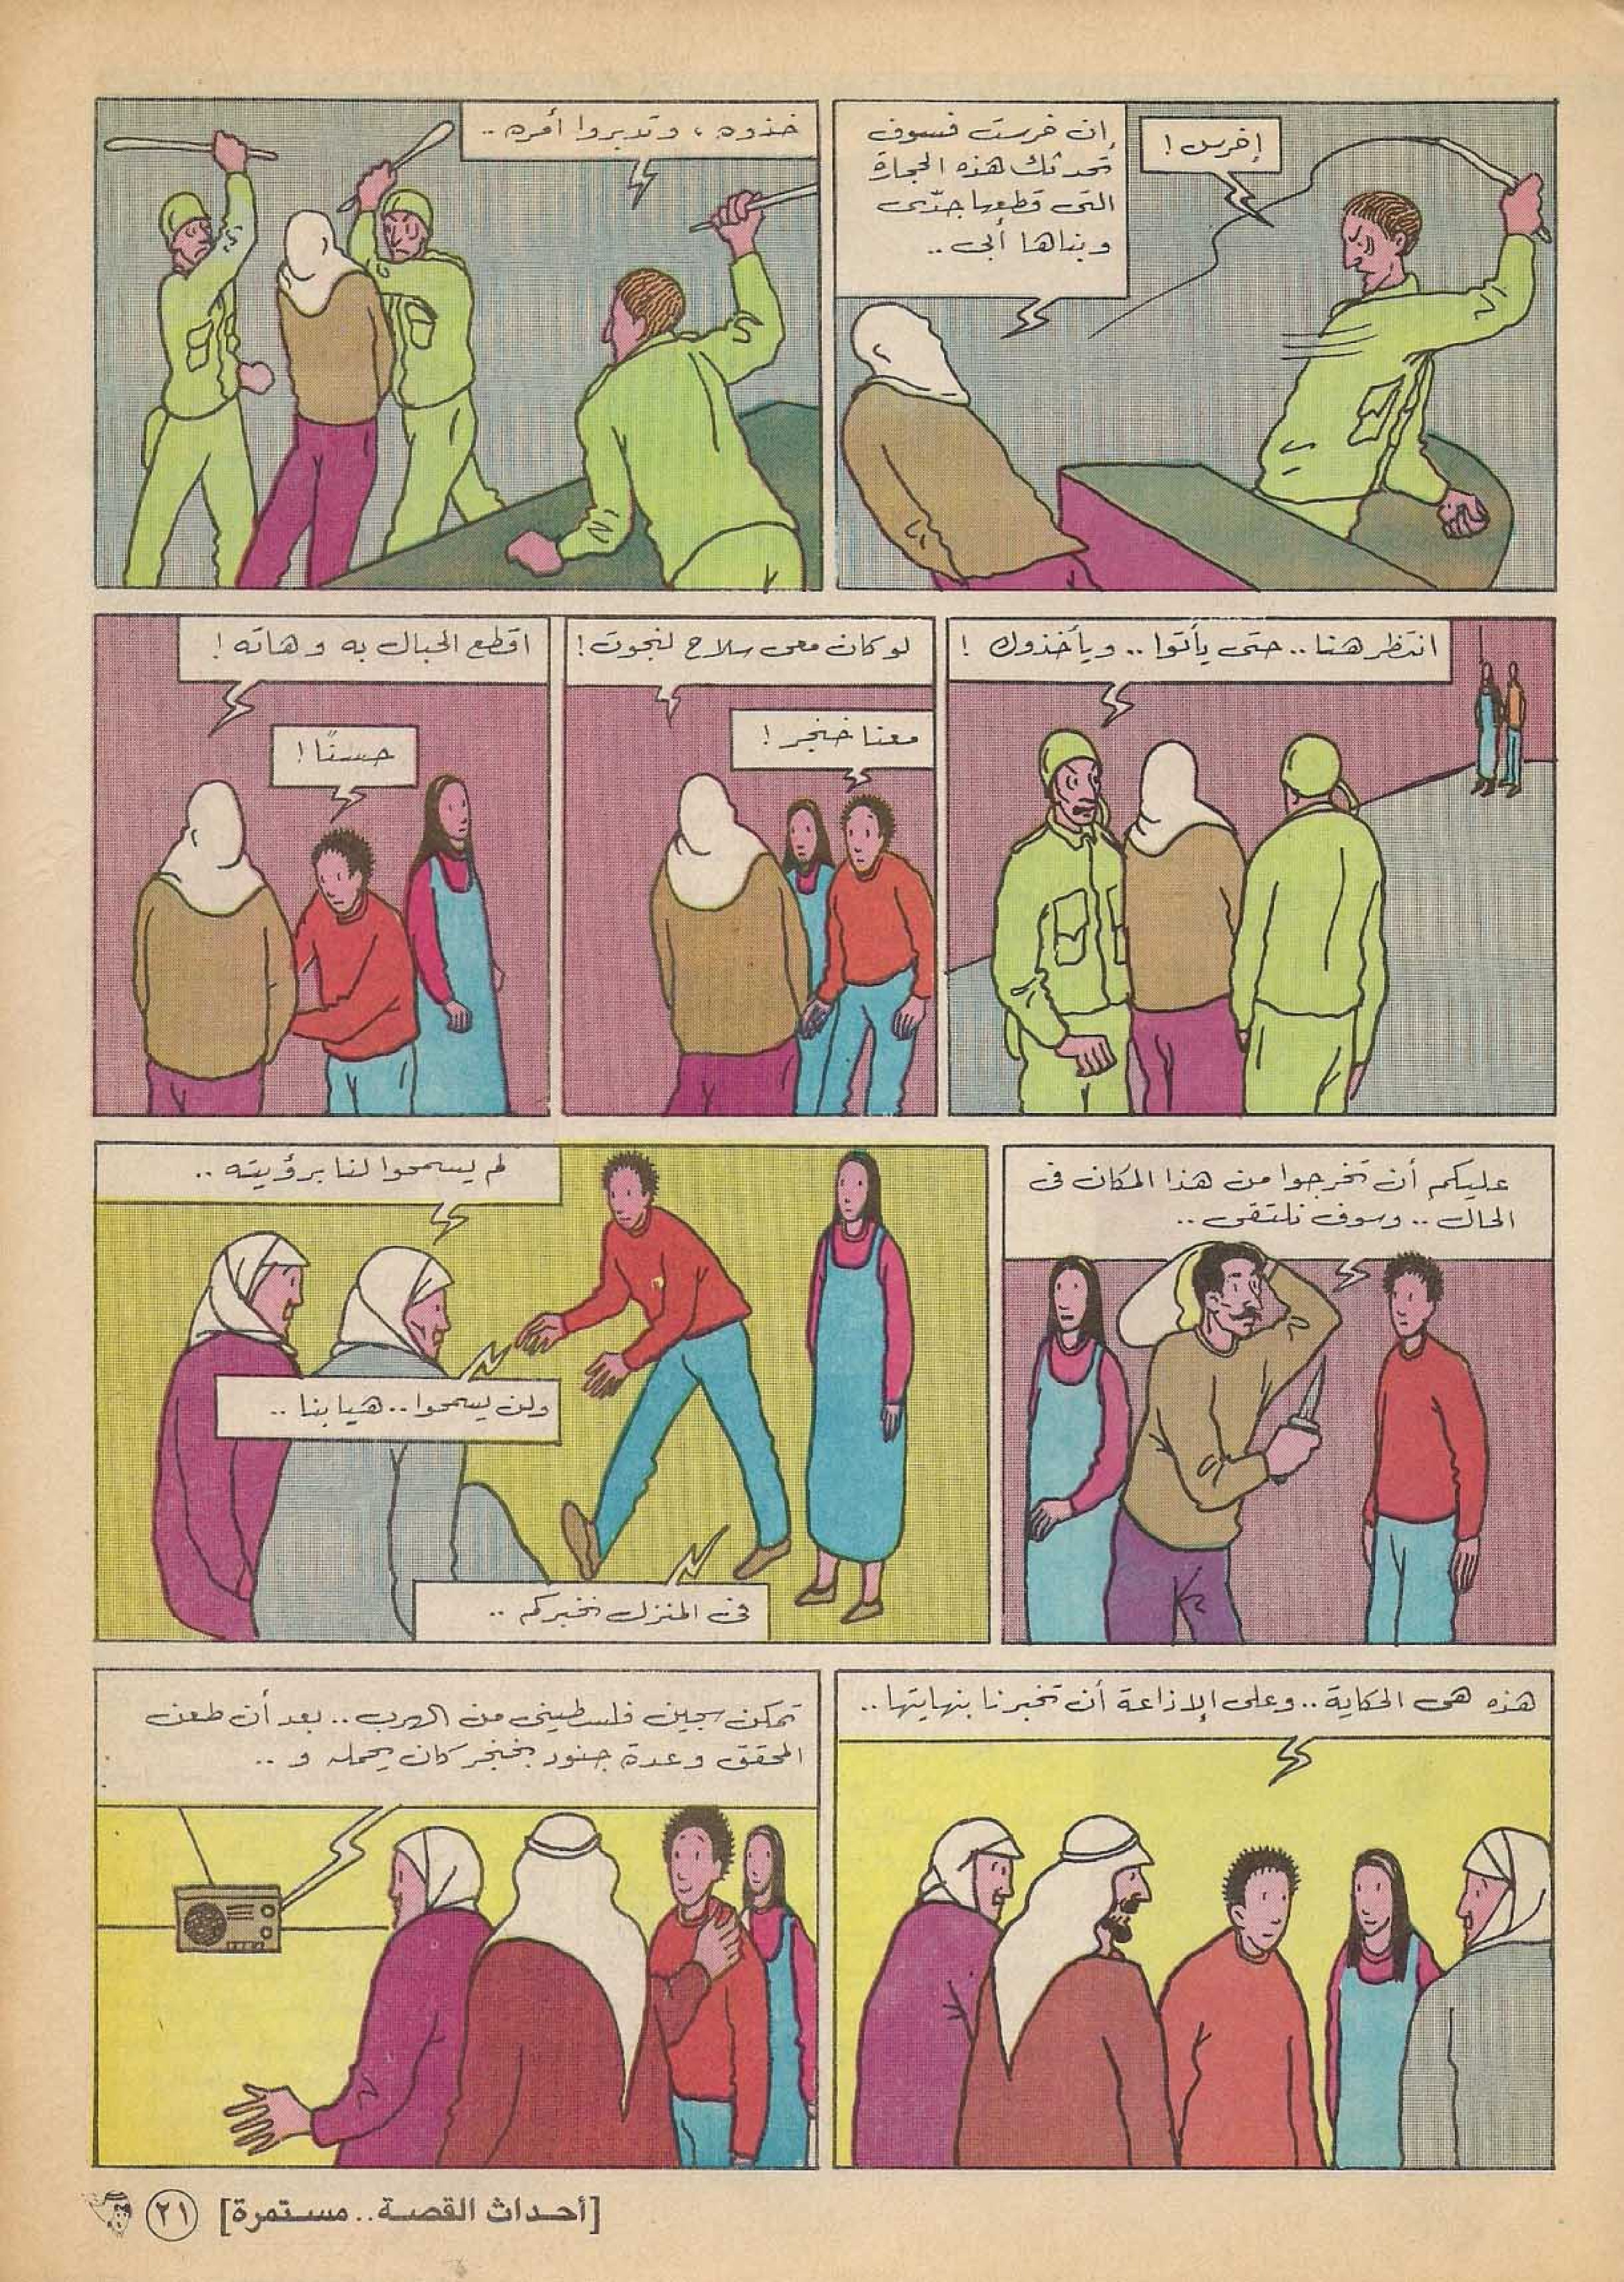 إخرس !
إن خرست فسوف
تحدثك هذه الحجارة
التى قطعها جدّى
وبناها أبى ..
خذوه ، وتدبروا أمره ..
انتظر هنا .. حتى يأتوا .. ويأخذوك !
لو كان معى سلاح لنجوت !
معنا خنجر !
اقطع الحبال به وهاته !
حسنًا !
عليكم أن تخرجوا من هذا المكان فى
الحال .. وسوف نلتقى ..
لم يسمحوا لنا برؤيته ..
ولن يسمحوا .. هيا بنا ..
فى المنزل نخبركم ..
هذه هى الحكاية .. وعلى الإذاعة أن تخبرنا بنهايتها ..
تمكن سجين فلسطينى من الهرب .. بعد أن طعن
المحقق وعدة جنود بخنجر كان يحمله و ..
[أحداث القصة .. مستمرة]
٢١